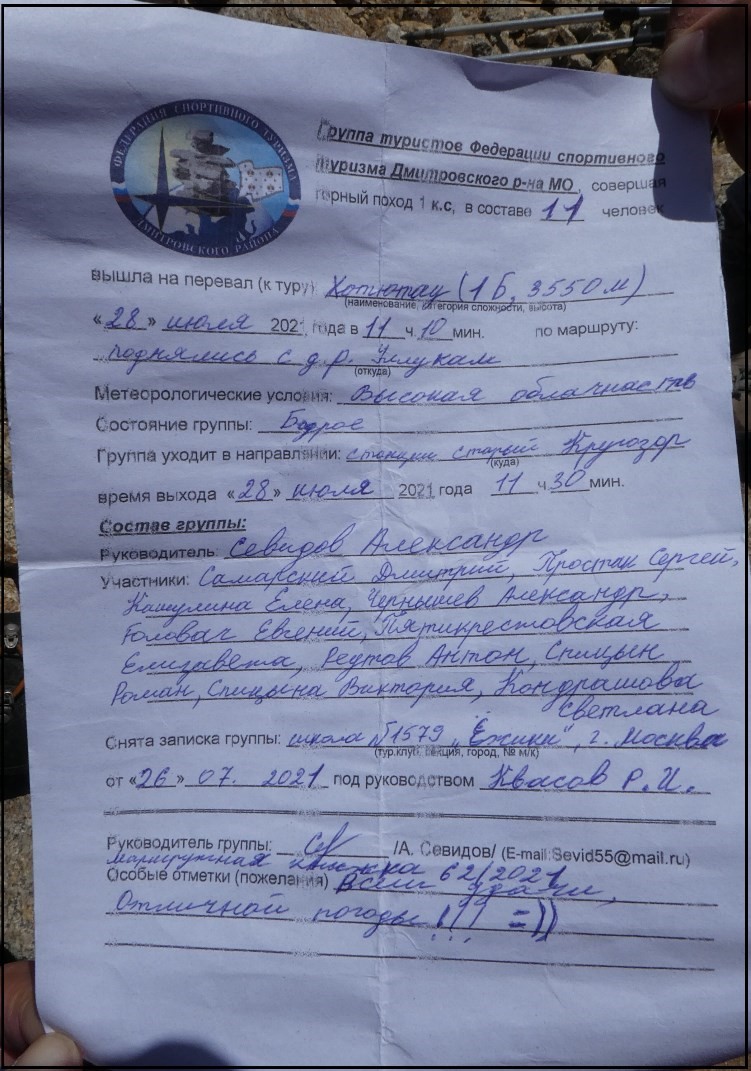 ФЕДЕРАЦИЯ СПОРТИВНОГО ТУРИЗМА
ДМИТРОВСКОГО РАЙОНА
Группа туристов Федерации спортивного
туризма Дмитровского р-на МО, совершая
горный поход 1 к.с, в составе 11 человек
вышла на перевал (к туру) Хотютау (1Б, 3550 м)
(наименование, категория сложности, высота)
«28» июля 2021 года в 11 ч. 10 мин. по маршруту:
поднялись с д.р. Уллукам
(откуда)
Метеорологические условия: Высокая облачность
Состояние группы: Бодрое
Группа уходит в направлении: станции старый Кругозор
(куда)
время выхода «28» июля 2021 года 11 ч 30 мин.
Состав группы:
Руководитель: Севидов Александр
Участники: Самарский Дмитрий, Простак Сергей,
Кашулина Елена, Чернышев Александр,
Головач Евгений, Пятикрестовская
Елизавета, Редтов Антон, Спицын
Роман, Спицына Виктория, Кондрашова
Светлана
Снята записка группы: школа №1579 "Ёжики", г. Москва
(тур.клуб, секция, город, № м/к)
от «26» 07. 2021 под руководством Квасов Р.И.
Руководитель группы: /А. Севидов/ (E-mail:Sevid55@mail.ru)
маршрутная книжка 62/2021
Особые отметки (пожелания) Всем удачи,
Отличной погоды!!! =))